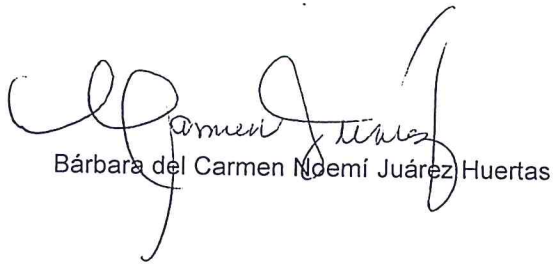 Carmen Juárez
Bárbara del Carmen Noemí Juárez Huertas